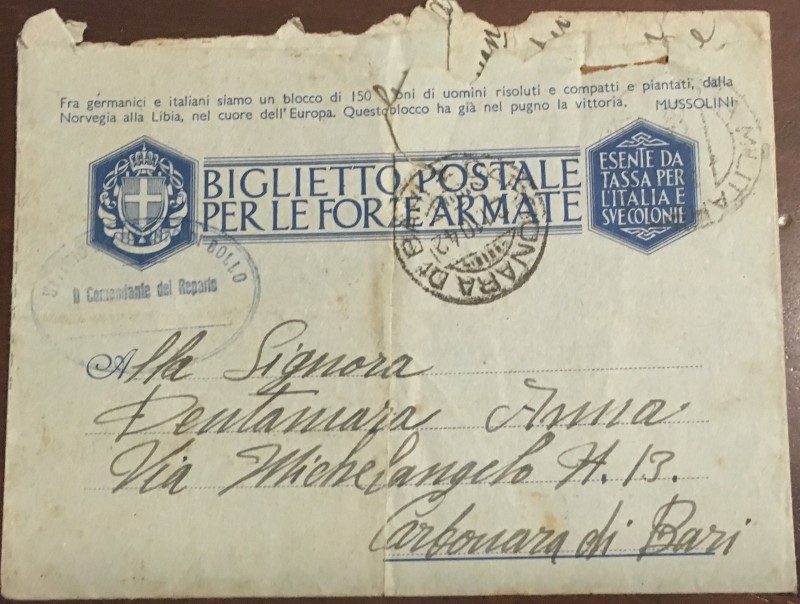 Fra germanici e italiani siamo un blocco di 150 oni di uomini risoluti e compatti e piantati, dalla
Norvegia alla Libia, nel cuore dell'Europa. Questo blocco ha già nel pugno la vittoria. MUSSOLINI
BIGLIETTO POSTALE
PER LE FORZE ARMATE
ESENTE DA
TASSA PER
L'ITALIA E
SVE COLONIE
CARBONARA DI BARI
Il Comandante del Reparto
Alla Signora
Dentamara Anna
Via Michelangelo N. 13.
Carbonara di Bari